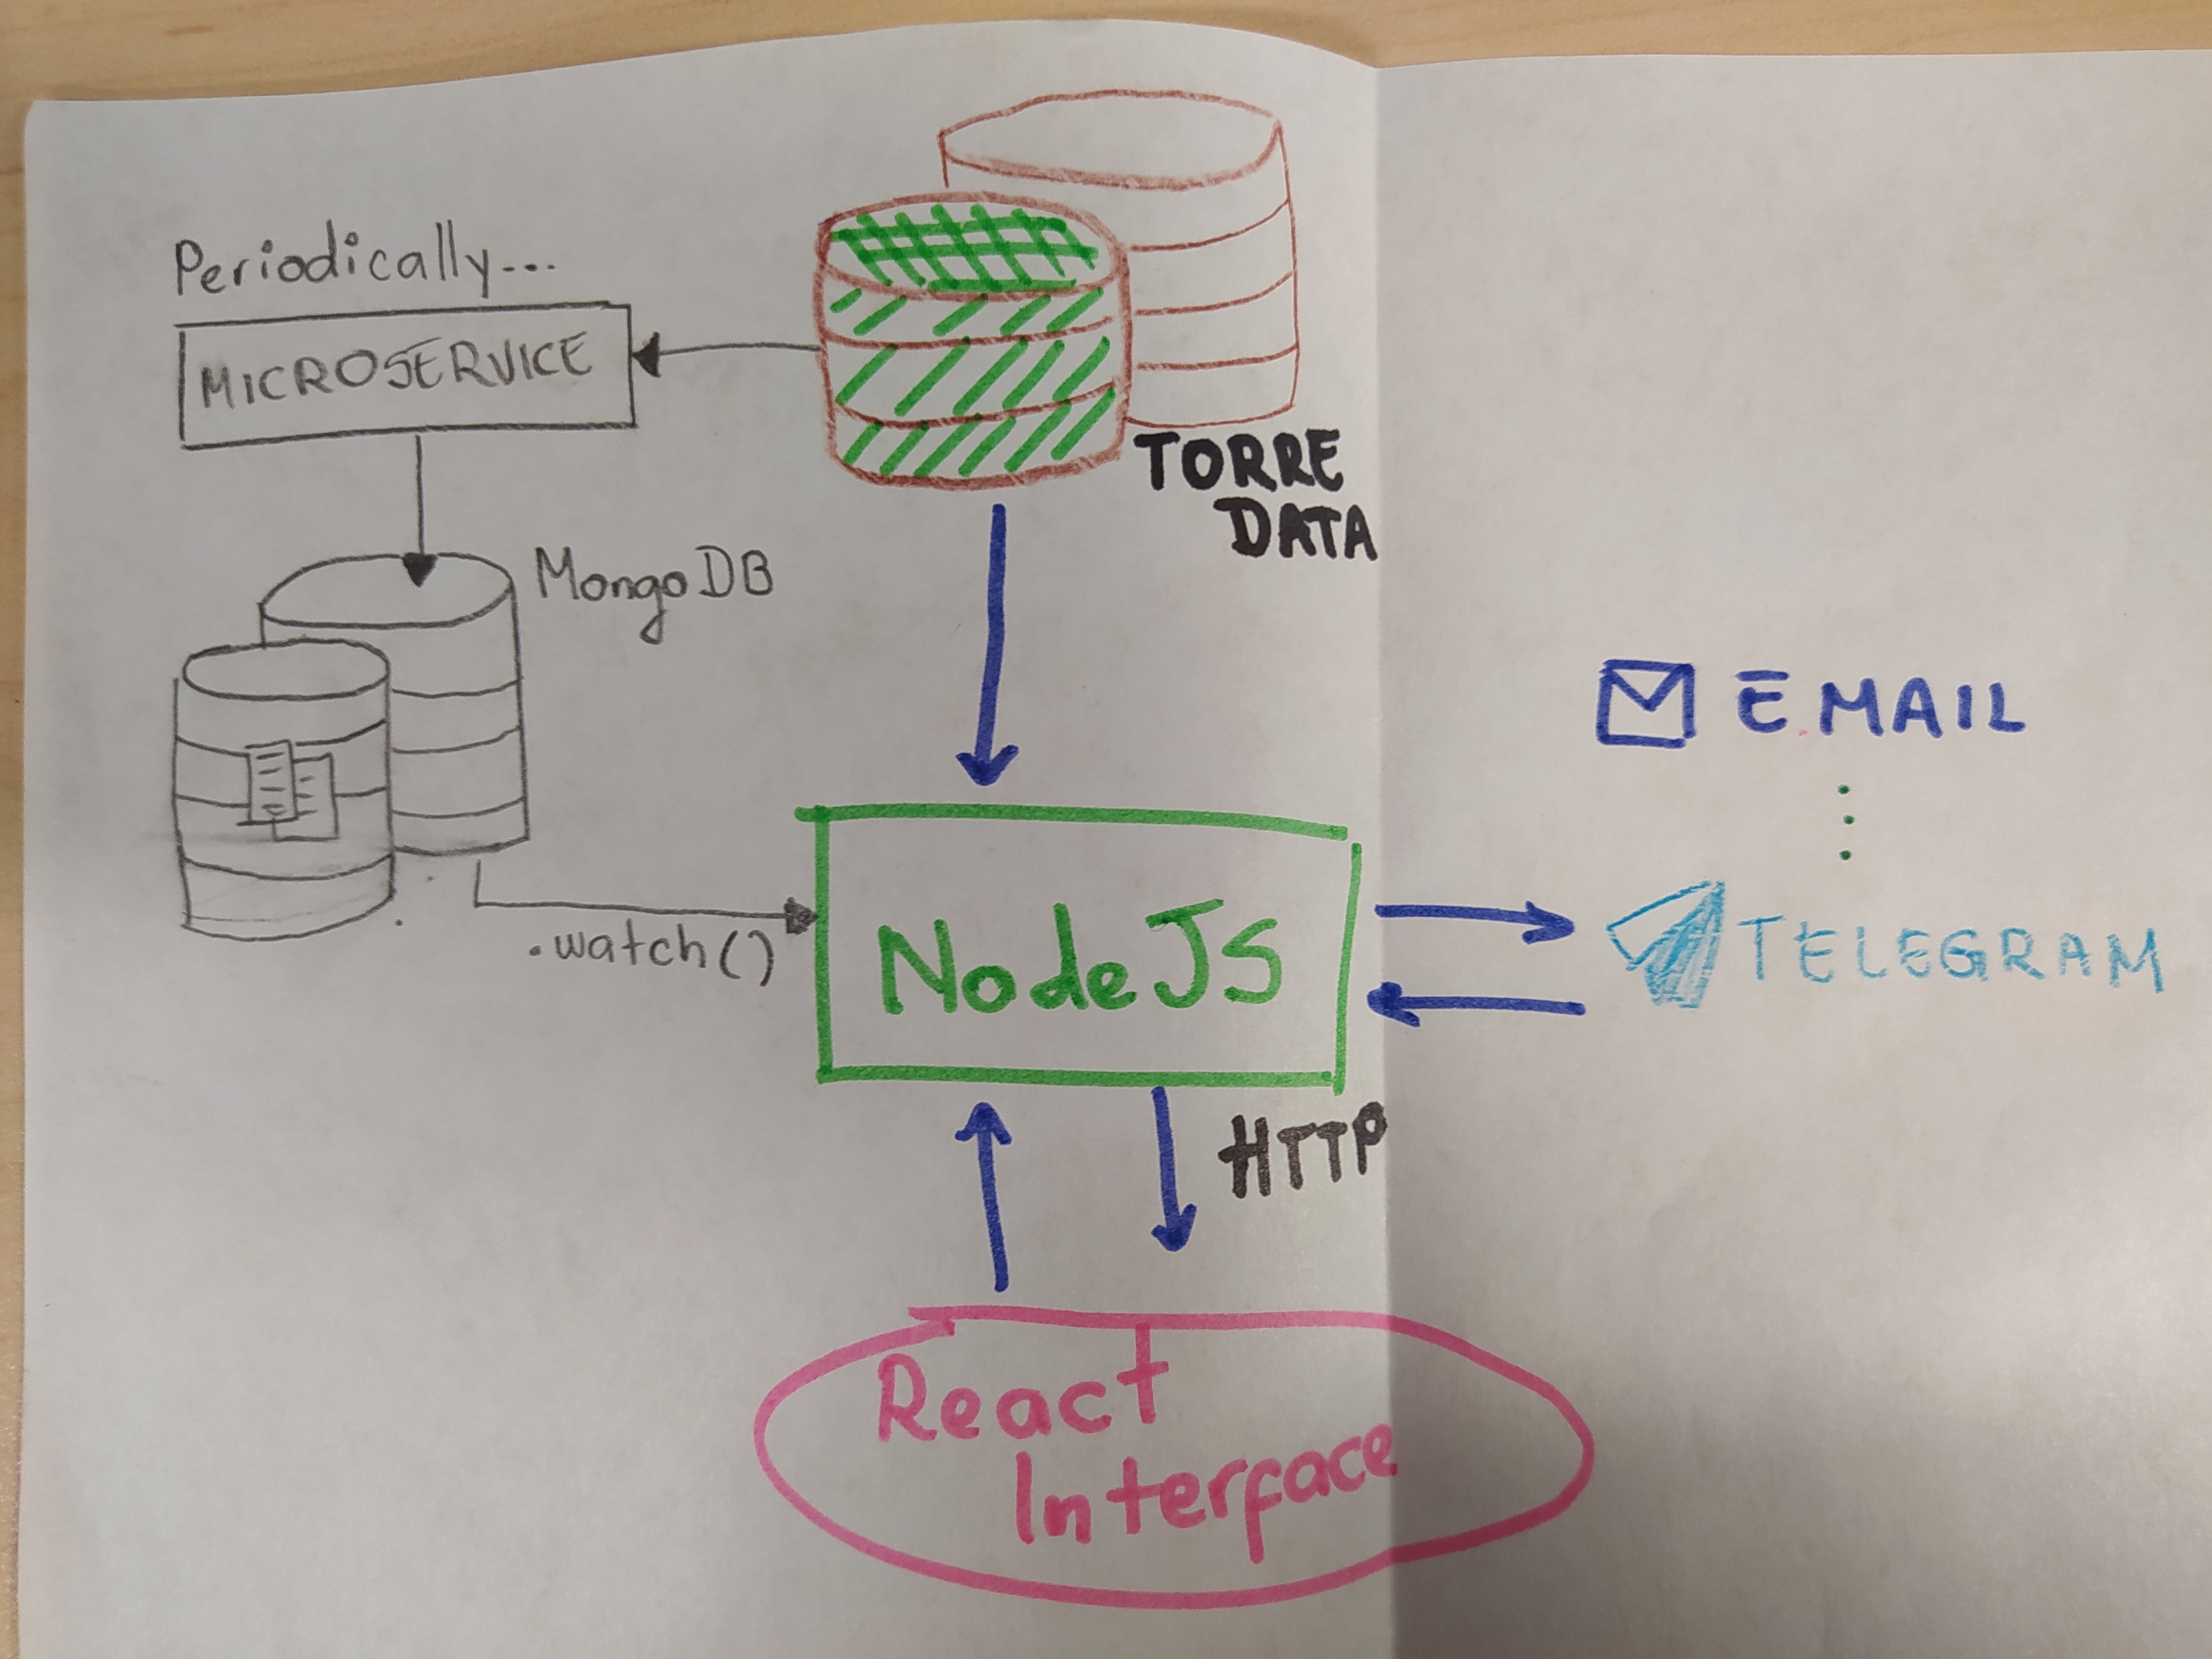 Periodically...
MICROSERVICE
TORRE
DATA
MongoDB
E.MAIL
.watch()
NodeJS
TELEGRAM
HTTP
React
Interface